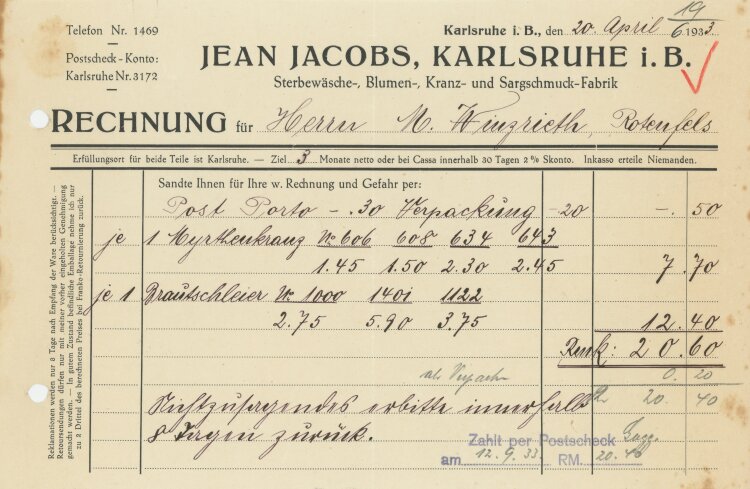 Telefon Nr. 1469
Postscheck-Konto:
Karlsruhe Nr. 3172
19/6
Karlsruhe i. B., den 20. April 1933.
JEAN JACOBS, KARLSRUHE i. B.
Sterbewäsche-, Blumen-, Kranz- und Sargschmuck-Fabrik
RECHNUNG für Herrn M. Wingrieth, Rotenfels
Erfüllungsort für beide Teile ist Karlsruhe. — Ziel 3 Monate netto oder bei Cassa innerhalb 30 Tagen 2% Skonto. Inkasso erteile Niemanden.
Sandte Ihnen für Ihre w. Rechnung und Gefahr per:
Post Porto -.30 Verpackung -20 -. 50
je 1 Myrthenkranz No 606 608 634 643
1.45 1.50 2.30 2.45 7.70
je 1 Brautschleier No 1000 1401 1122
2.75 5.90 3.75 12.40
Renk: 20.60
0.20
20.40
Nichtzusagendes erbitte innerhalb
8 Tagen zurück.
Zahlt per Postscheck
am 12.9.33 RM. 20.40
Reklamationen werden nur 8 Tage nach Empfang der Ware berücksichtigt. —
Retoursendungen dürfen nur mit meiner vorher eingeholten Genehmigung
gemacht werden. — In gutem Zustand befindliche Emballage nehme ich nur
zu 2 Drittel des berechneten Preises bei Franko-Retournierung zurück.